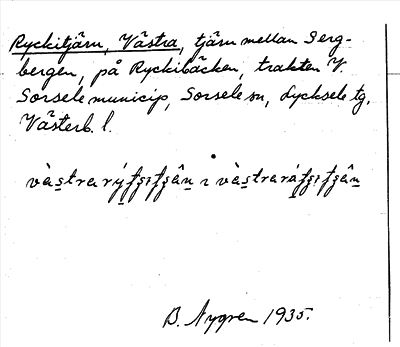 Ryckitjärn, Västra, tjärn mellan Serg-
bergen, på Ryckibäcken, trakten V.
Sorsele municip, Sorsele sn, Lycksele tg,
Västerb. l.
B. Nygren 1935.